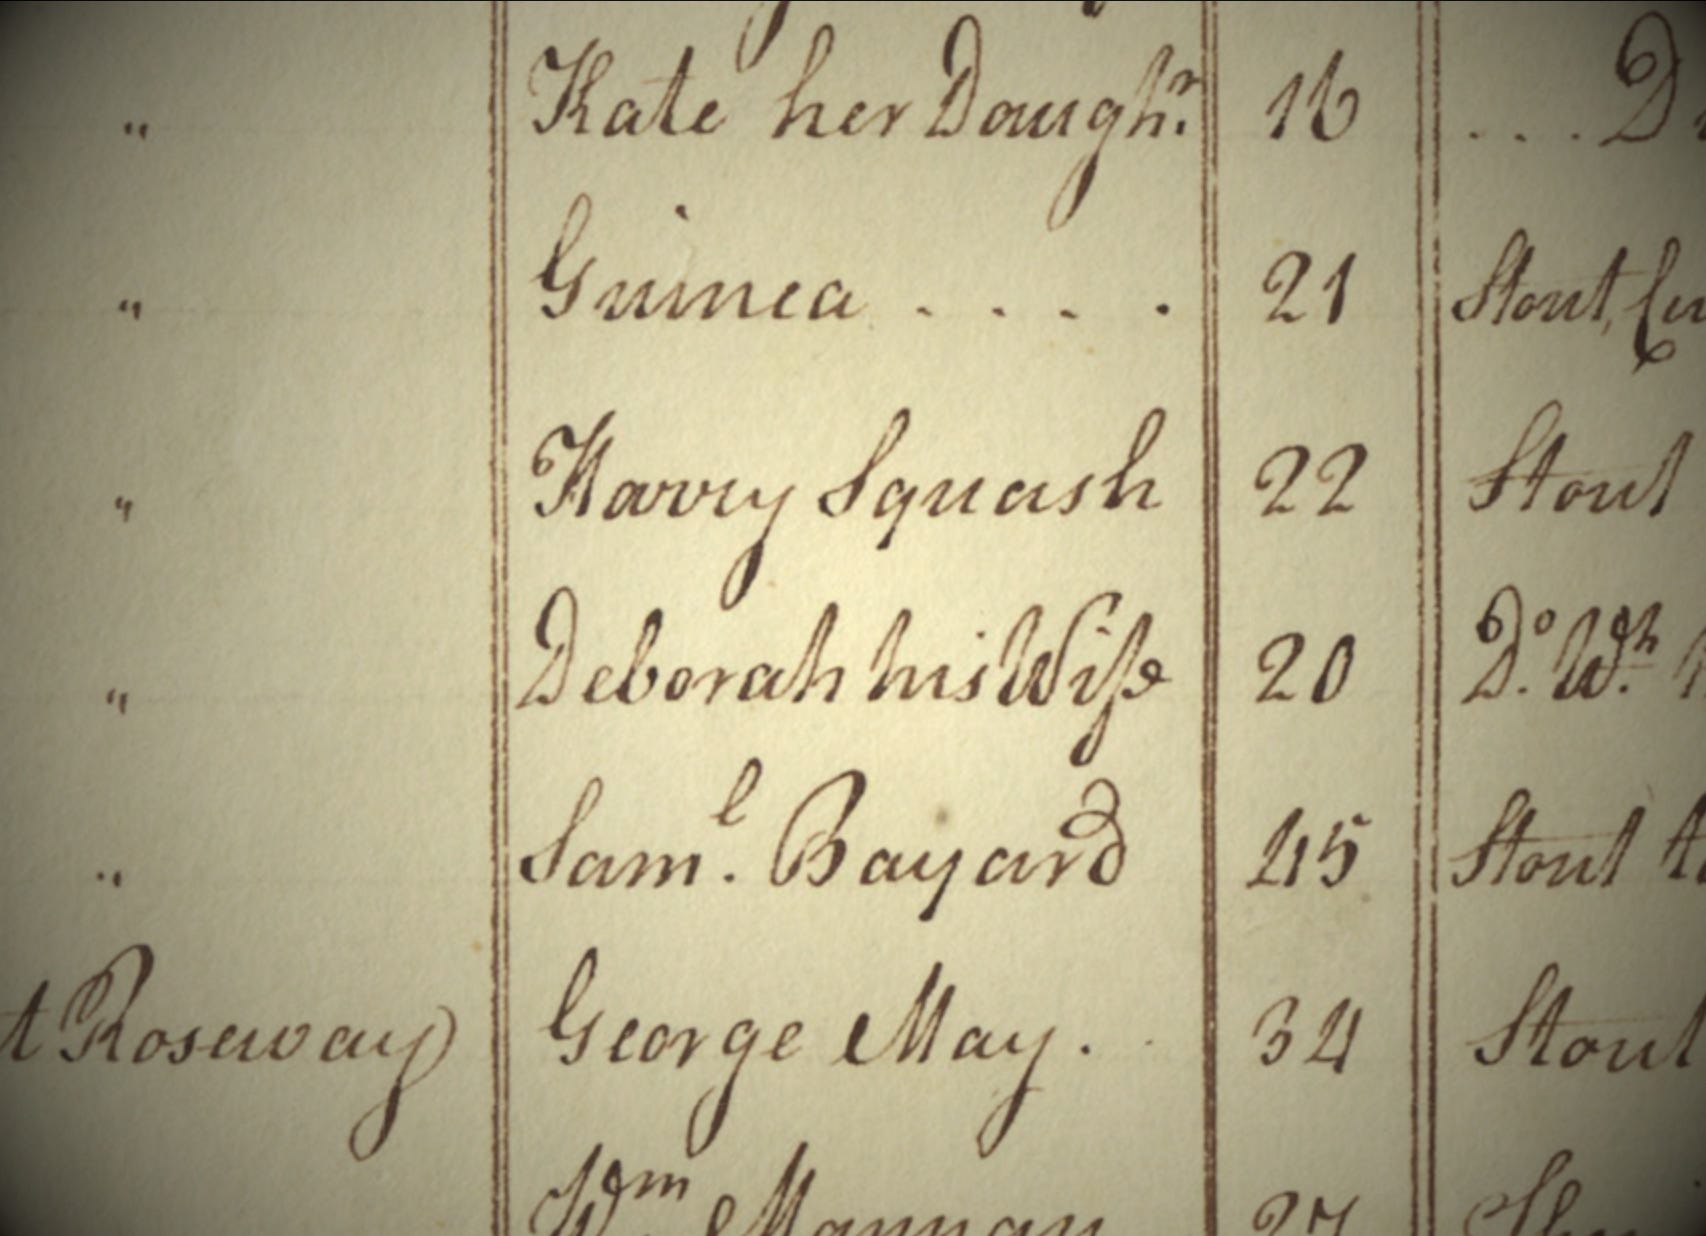 " Kate her Daughr. 16 . . . D
" Guinea . . . . 21 Stout,
" Harry Squash 22 Stout
" Deborah his Wife 20 Do. Wh.
" Saml. Bayard 45 Stout
t Roseway) George May. 34 Stout
Wm. 27